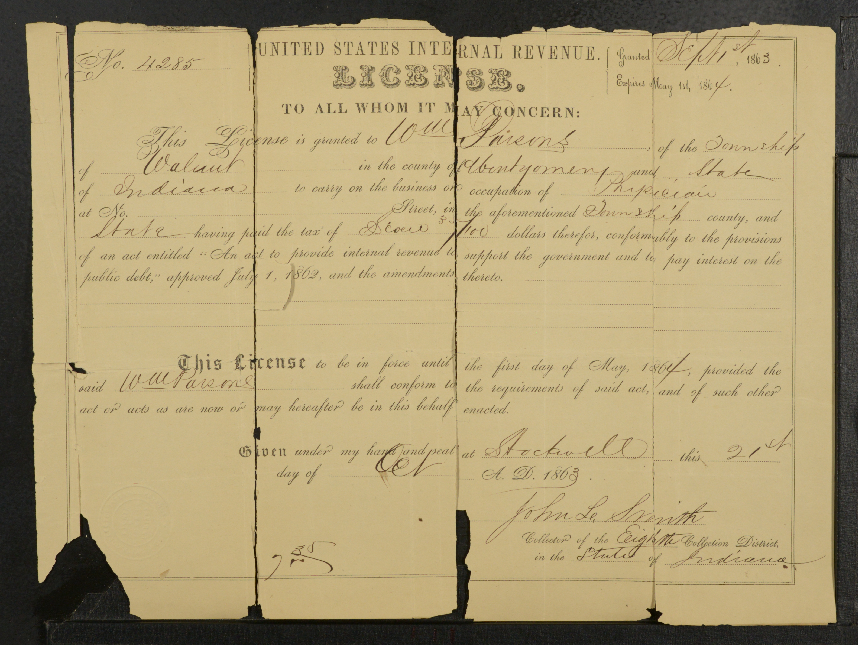 No. 4285
UNITED STATES INTERNAL REVENUE.
Granted Sept 1st, 1863
LICENSE.
Expires May 1st, 1864.
TO ALL WHOM IT MAY CONCERN:
This License is granted to Wm Parsons of the Township
of Walnut in the county of Montgomery and State
of Indiana to carry on the business or occupation of Physician
at No. Street, in the aforementioned Township county, and
State having paid the tax of /100 dollars therefor, conformably to the provisions
of an act entitled "An act to provide internal revenue to support the government and to pay interest on the
public debt," approved July 1, 1862, and the amendments thereto.
This License to be in force until the first day of May, 1864, provided the
said Wm Parsons shall conform to the requirements of said act, and of such other
act or acts as are now or may hereafter be in this behalf enacted.
Given under my hand and seal at Stockwell this 21st
day of Oct A. D. 1863.
John L. Smith
Collector of the Eighth Collection District,
in the State of Indiana